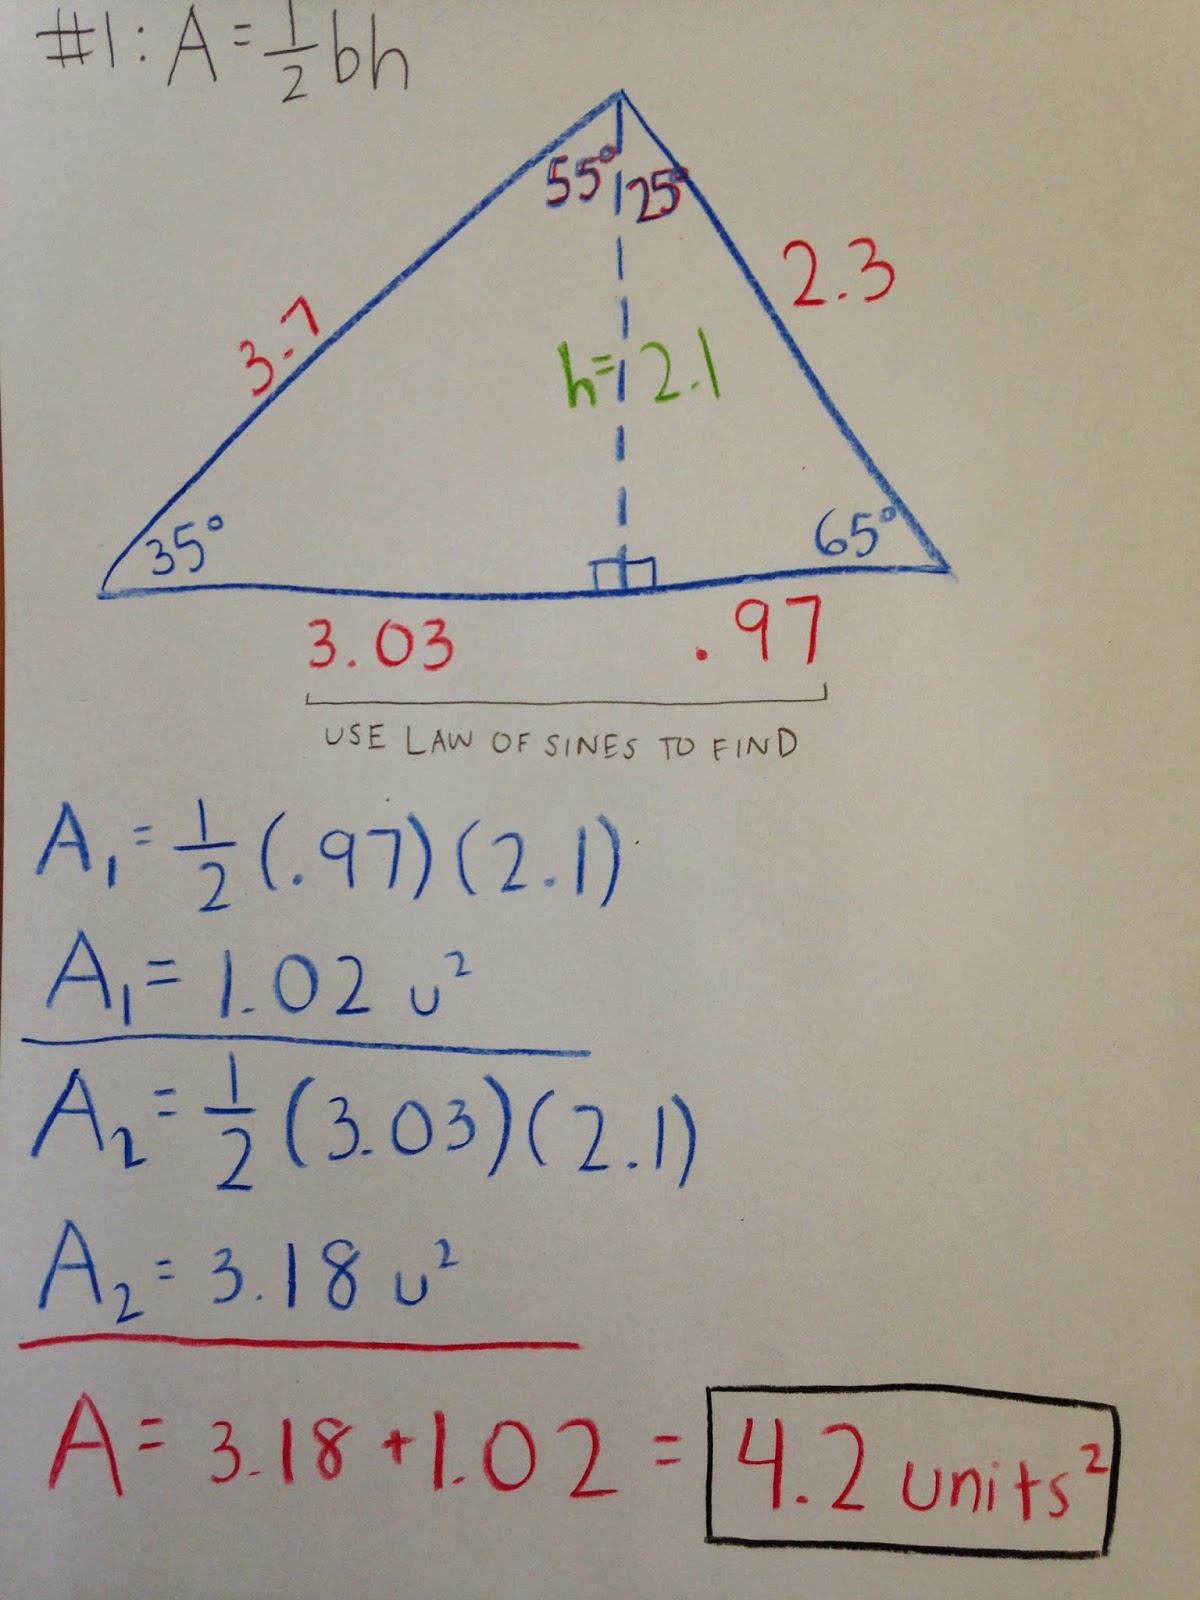 #1: A = 1/2 bh
55° 25°
3.7
2.3
h = 2.1
35°
65°
3.03 .97
USE LAW OF SINES TO FIND
A₁ = 1/2 (.97)(2.1)
A₁ = 1.02 u²
A₂ = 1/2 (3.03)(2.1)
A₂ = 3.18 u²
A = 3.18 + 1.02 = 4.2 units²